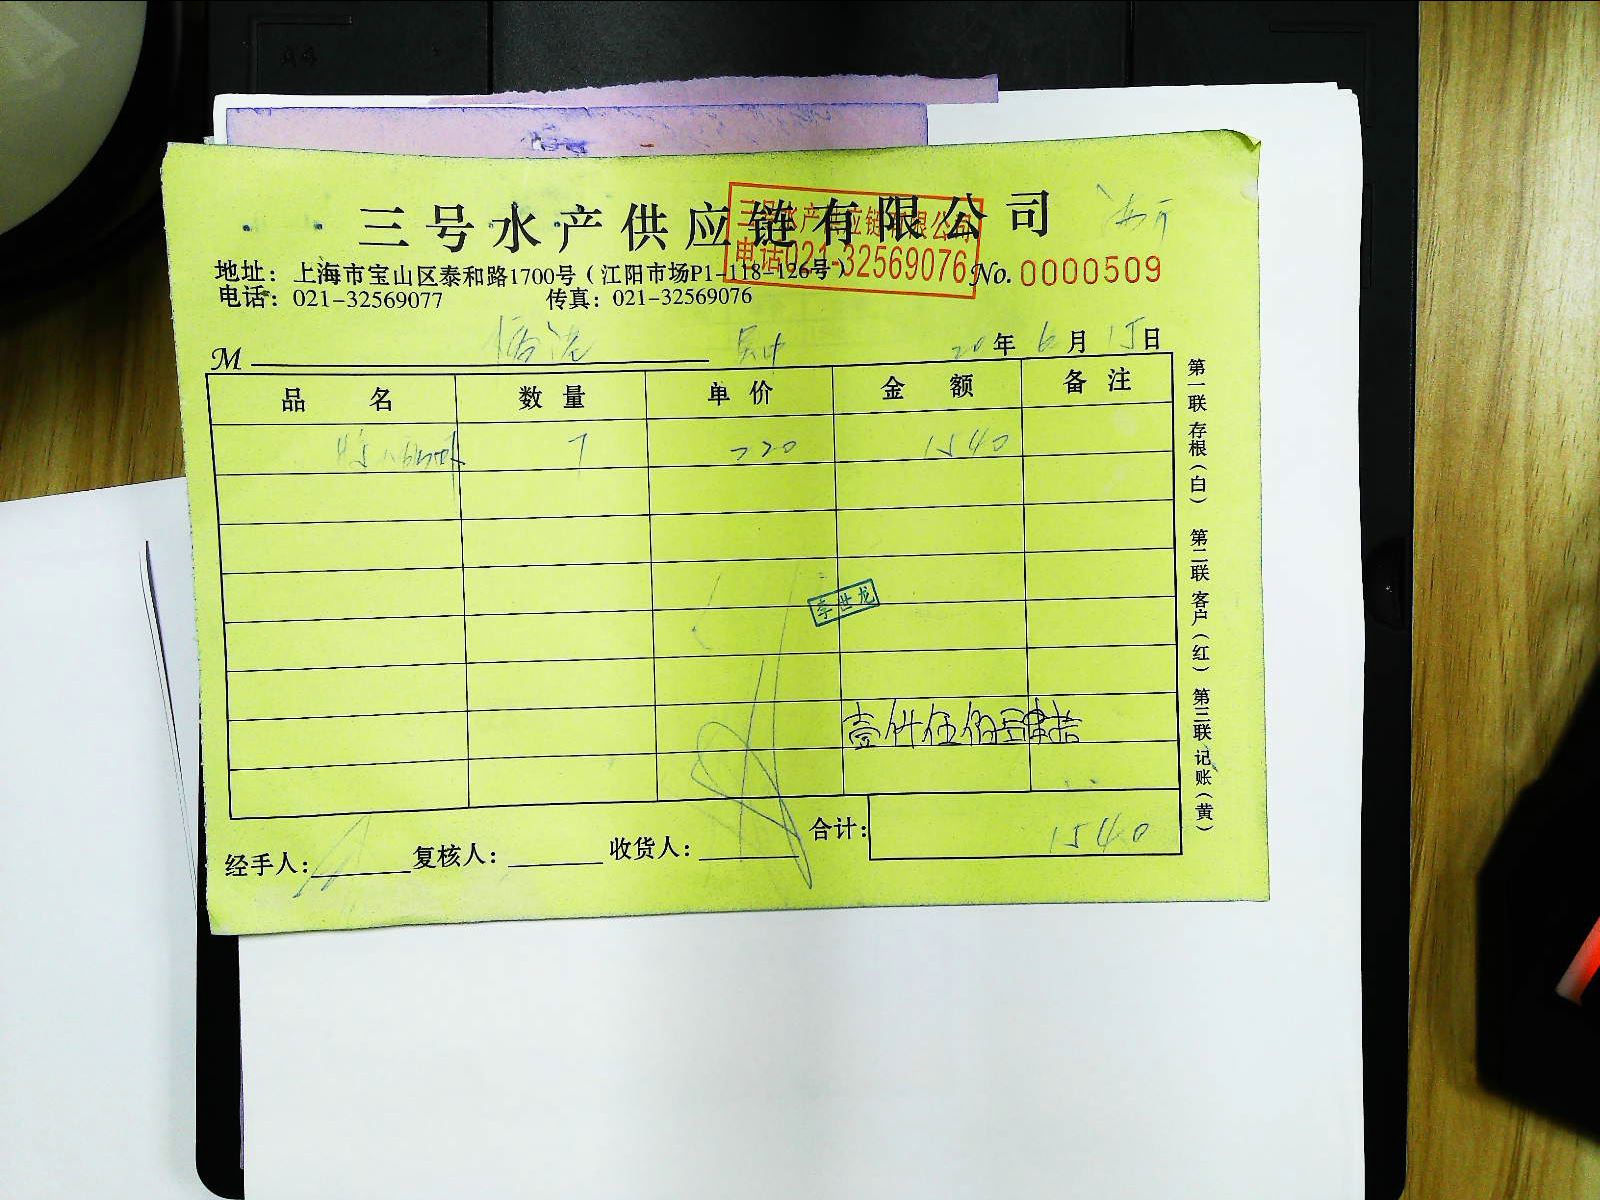 三号水产供应链有限公司
三号水产供应链有限公司
电话021-32569076
地址：上海市宝山区泰和路1700号（江阳市场P1-118-126号）
No. 0000509
电话：021-32569077 传真：021-32569076
M
20年6月15日
品名 数量 单价 金额 备注
7 220 1540
李世龙
壹仟伍佰肆拾
合计： 1540
经手人： 复核人： 收货人：
第一联 存根（白） 第二联 客户（红） 第三联 记账（黄）